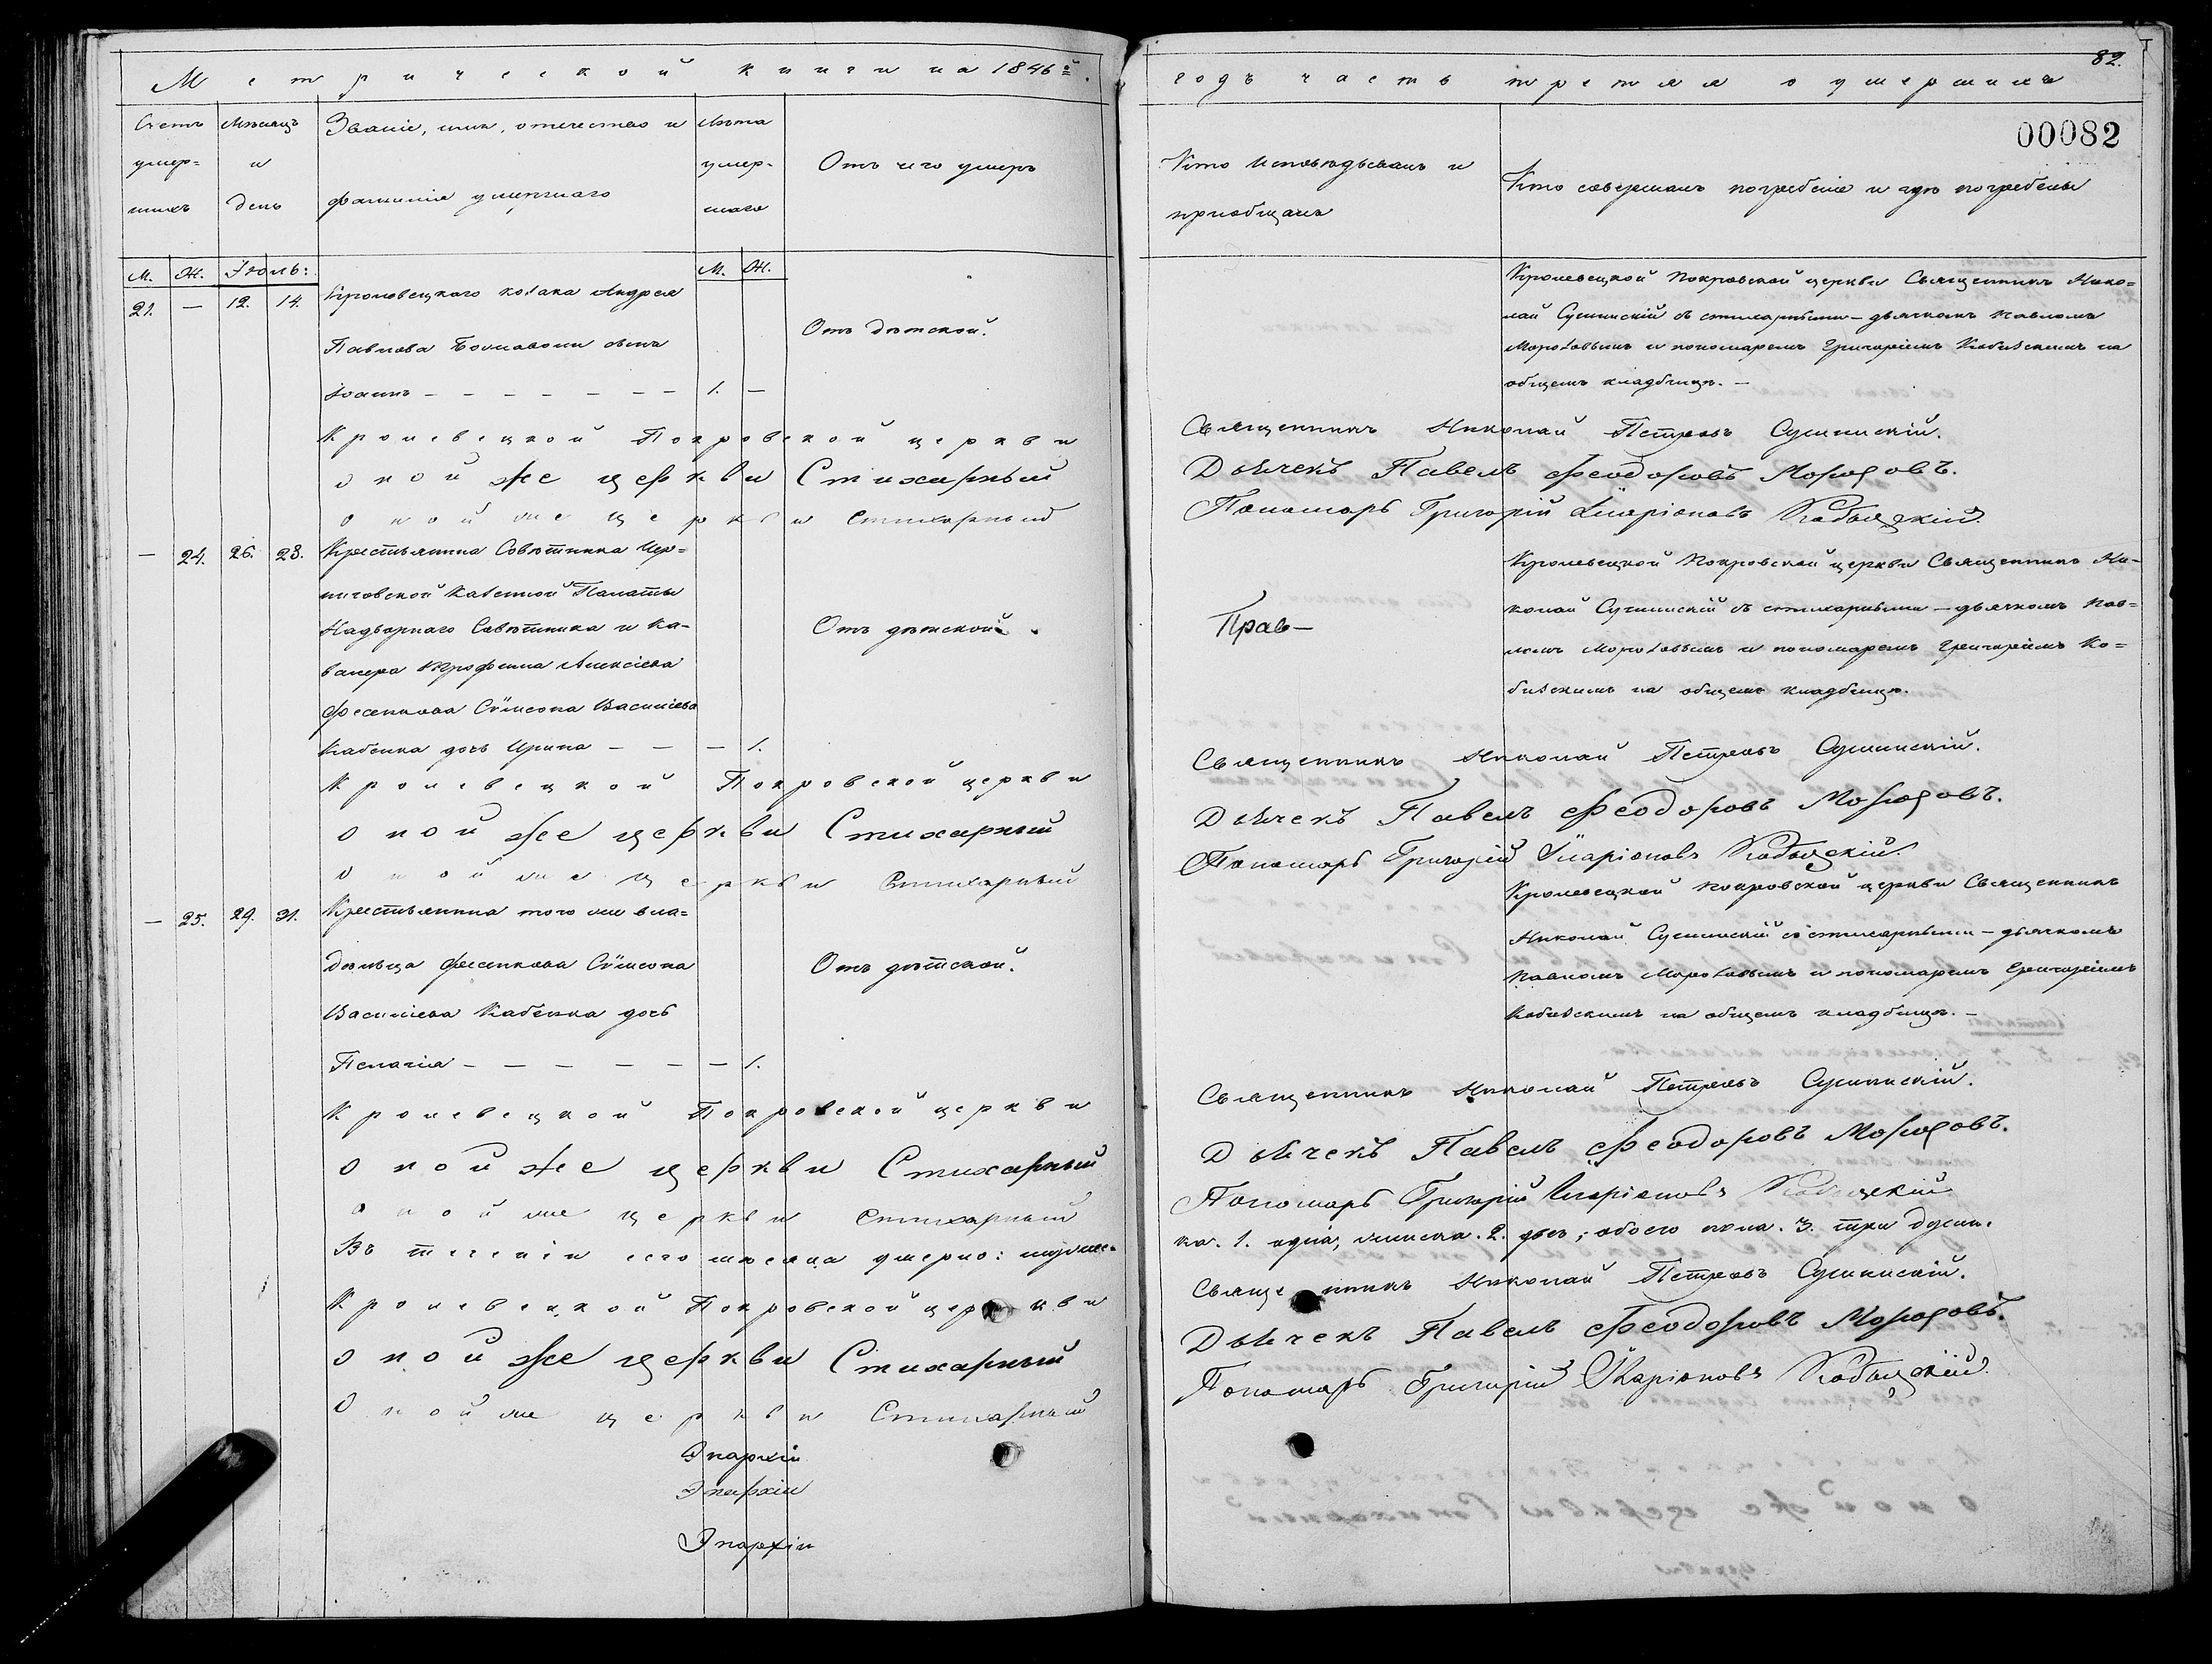 Метрической книги на 1846й.
Счетъ умер- шихъ
Мѣсяцъ и день
Званіе, имя, отечество и фамилія умершаго
Лѣта умер- шаго
Отъ чего умеръ
М. Ж. Іюль: М. Ж.
21. — 12. 14. Кролевецкаго козака Андрея
Павлова сынъ
Іоаннъ — — — — — — — 1. —
Отъ дѣтской.
Кролевецкой Покровской церкви
оной же церкви Стихарный
оной же церкви Стихарный
— 24. 26. 28. Крестьянина Совѣтника Чер=
ниговской Казенной Палаты
Надворнаго Совѣтника и Ка-
валера Трофима Алексіева
Фесенкова Сѵмеона Василіева
Кабенка дочь Ирина — — — 1.
Отъ дѣтской.
Кролевецкой Покровской церкви
оной же церкви Стихарный
оной же церкви Стихарный
— 25. 29. 31. Крестьянина того же вла=
дѣльца Фесенкова Сѵмеона
Василіева Кабенка дочь
Пелагія — — — — — — 1.
Отъ дѣтской.
Кролевецкой Покровской церкви
оной же церкви Стихарный
оной же церкви Стихарный
Въ теченіи сего мѣсяца умерло: мужес-
Кролевецкой Покровской церкви
оной же церкви Стихарный
Оной же церкви Стихарный
Эпархіи
Эпархіи
Эпархіи
82.
годъ часть третяя о умершихъ
00082
Кто исповѣдывалъ и
пріобщалъ
Кто совершалъ погребеніе и гдѣ погребены
Кролевецкой Покровской церкви Священникъ Нико=
лай Сушинскій съ стихарными — дьячкомъ Павломъ
Морозовымъ и пономаремъ Григоріемъ Кобизскимъ на
общемъ кладбищѣ. —
Священникъ Николай Петровъ Сушинскій.
Дьячекъ Павелъ Феодоровъ Морозовъ.
Пономарь Григорій Иларіоновъ Кобызскій.
Кролевецкой Покровской церкви Священникъ Ни-
колай Сушинскій съ стихарными — дьячкомъ Пав=
ломъ Морозовымъ и пономаремъ Григоріемъ Ко=
бизскимъ на общемъ кладбищѣ.
Прав—
Священникъ Николай Петровъ Сушинскій.
Дьячекъ Павелъ Феодоровъ Морозовъ.
Пономарь Григорій Иларіоновъ Кобызскій.
Кролевецкой Покровской церкви Священникъ
Николай Сушинскій съ стихарными — дьячкомъ
Павломъ Морозовымъ и пономаремъ Григоріемъ
Кобизскимъ на общемъ кладбищѣ. —
Священникъ Николай Петровъ Сушинскій.
Дьячекъ Павелъ Феодоровъ Морозовъ.
Пономарь Григорій Иларіоновъ Кобызскій.
ка. 1. одна, женска. 2. двѣ; обоего пола. 3. три души.
Священникъ Николай Петровъ Сушинскій.
Дьячекъ Павелъ Феодоровъ Морозовъ.
Пономарь Григорій Иларіоновъ Кобызскій.